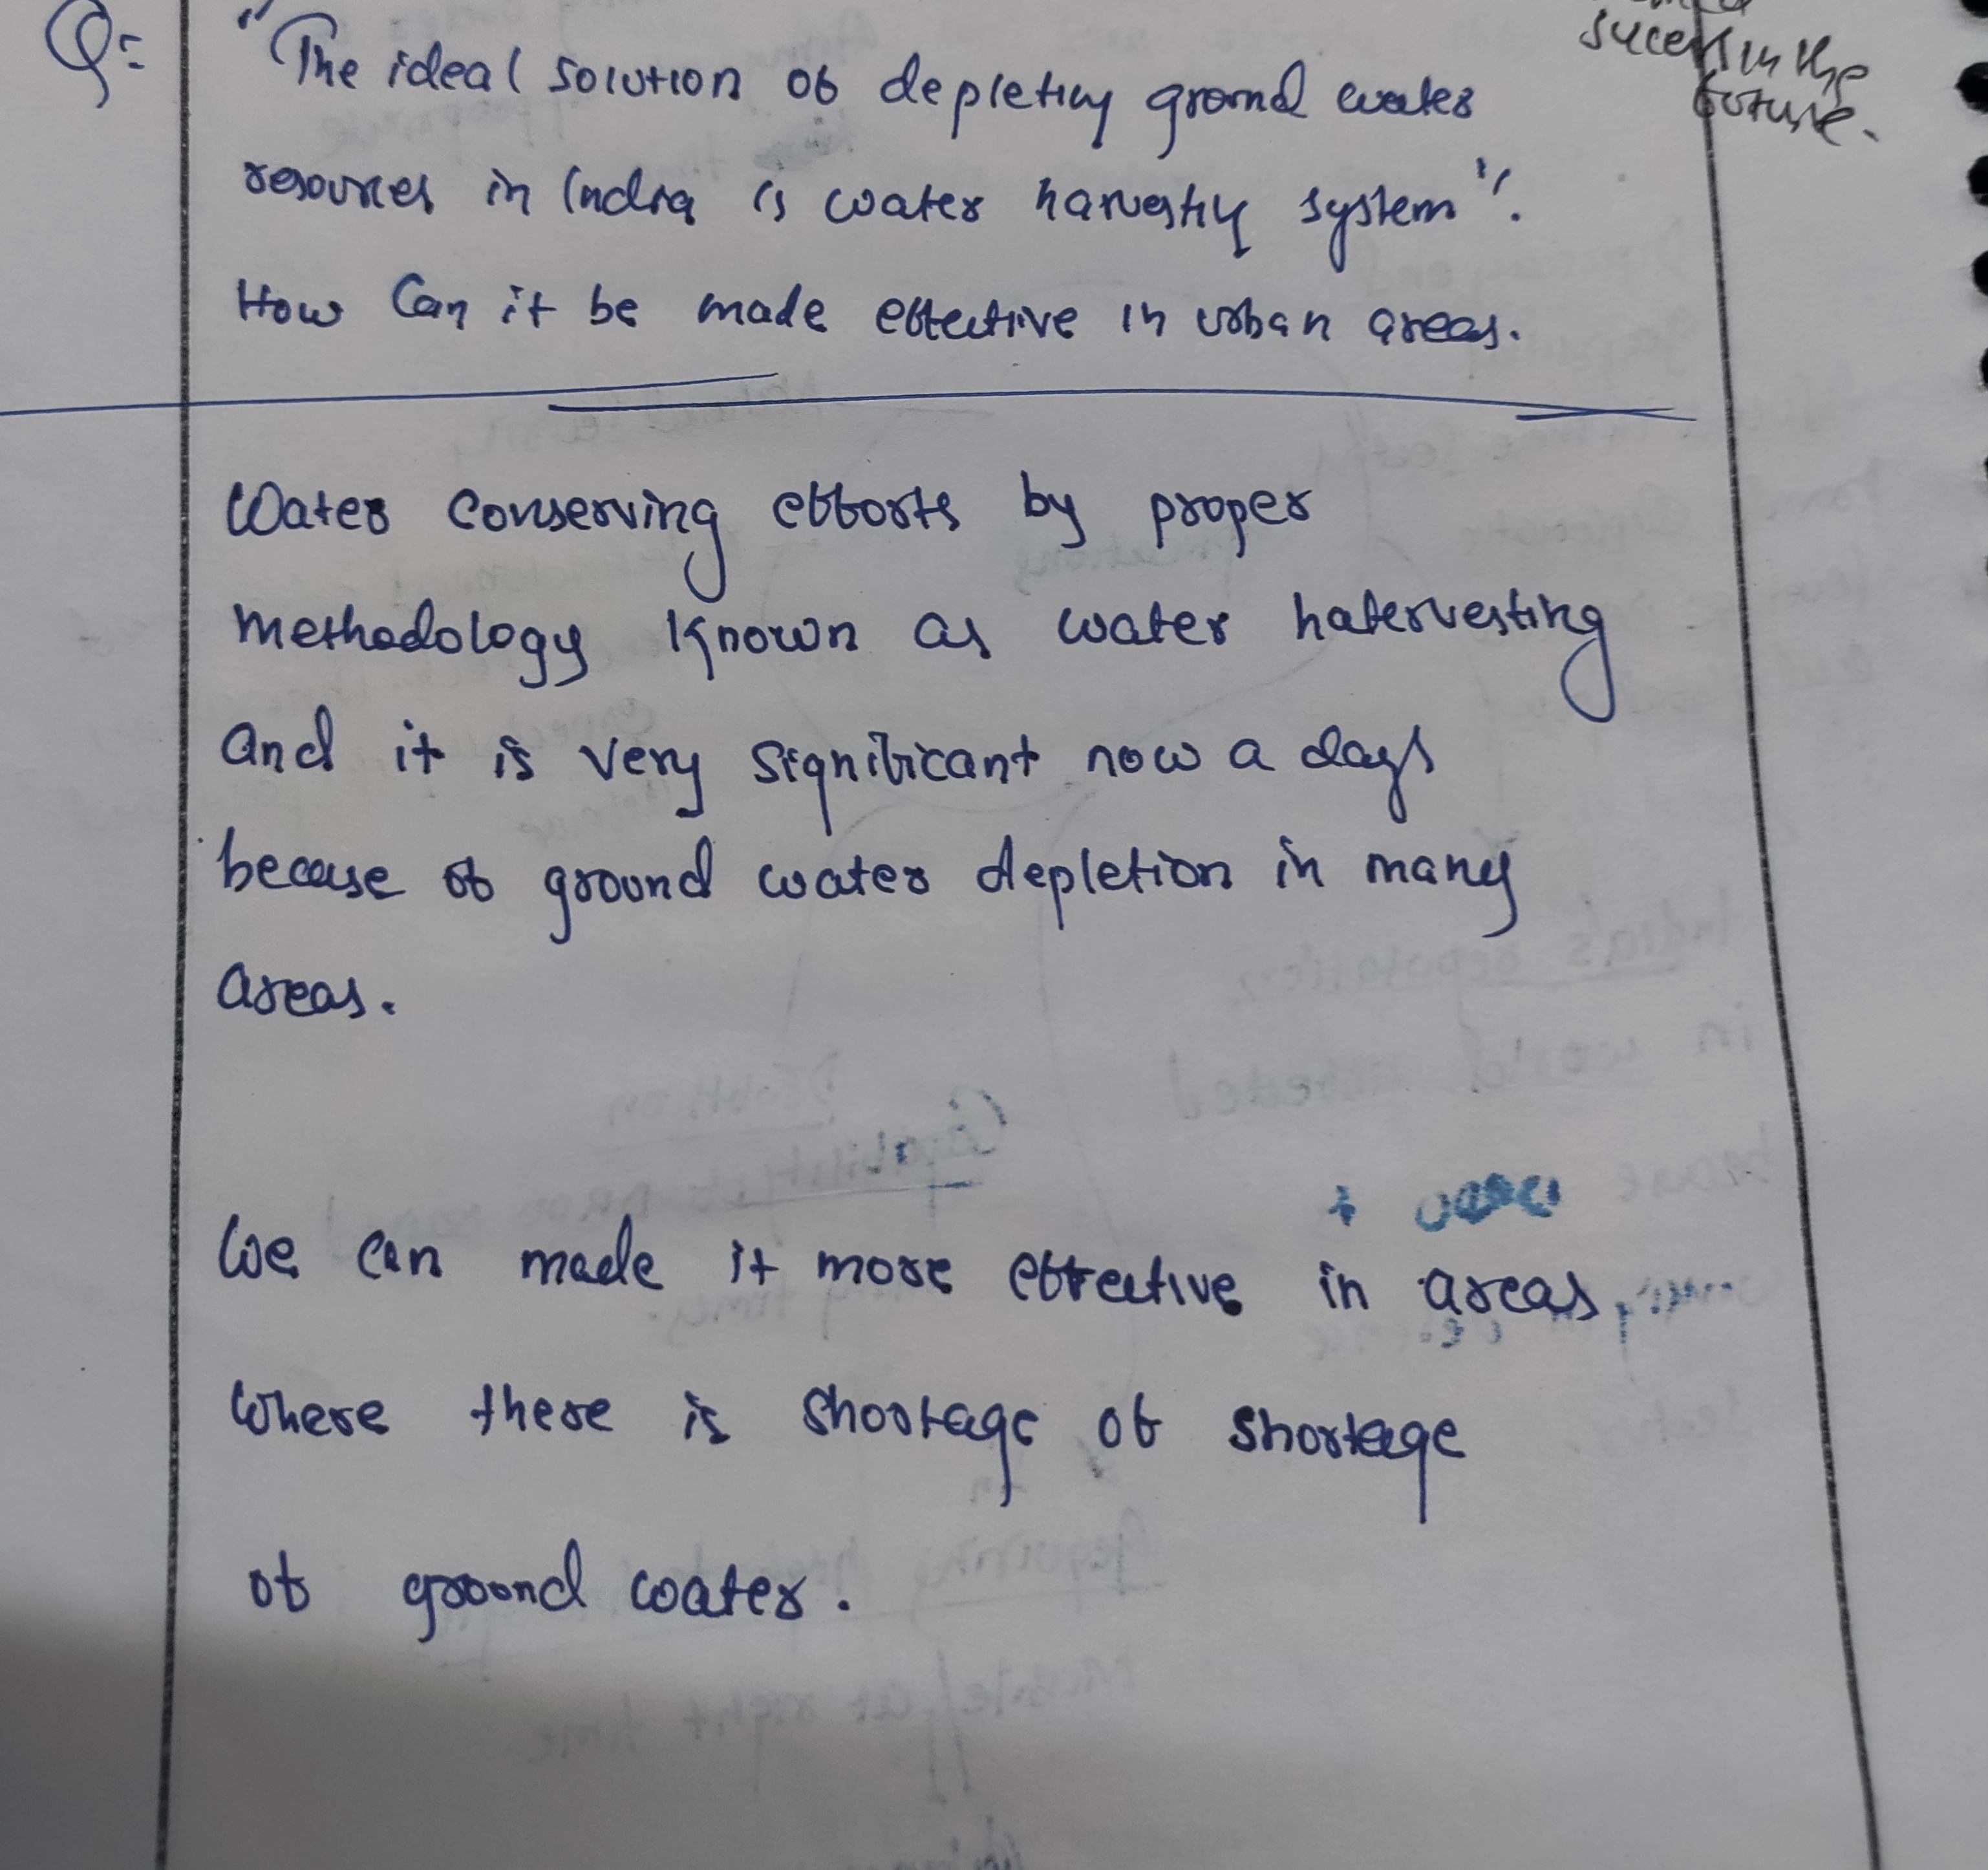 Q:
"The ideal solution of depleting ground water
resources in India is water harvesting system".
How Can it be made effective in urban areas.
success in the
future.
Water conserving efforts by proper
methodology known as water hatervesting
and it is very significant now a days
because of ground water depletion in many
areas.
We can made it more effective in areas
where there is shootage of shortage
of ground water.